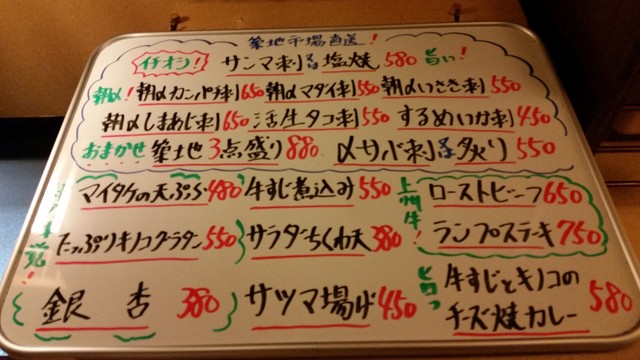 築地市場直送！
イチオシ！ サンマ刺又は塩焼 580 旨い！
朝〆！ 朝〆カンパチ刺650 朝〆マダイ刺550 朝〆いさき刺 550
朝〆しまあじ刺650 活生タコ刺550 するめいか刺 450
おまかせ 築地3点盛り880 〆サバ刺又は炙り 550
マイタケの天ぷら480 牛すじ煮込み 550 上州牛！ ローストビーフ650
たっぷりキノコグラタン 550 サラダちくわ天380 ランプステーキ750
銀杏 380 サツマ揚げ450 牛すじとキノコの
チーズ焼カレー 580